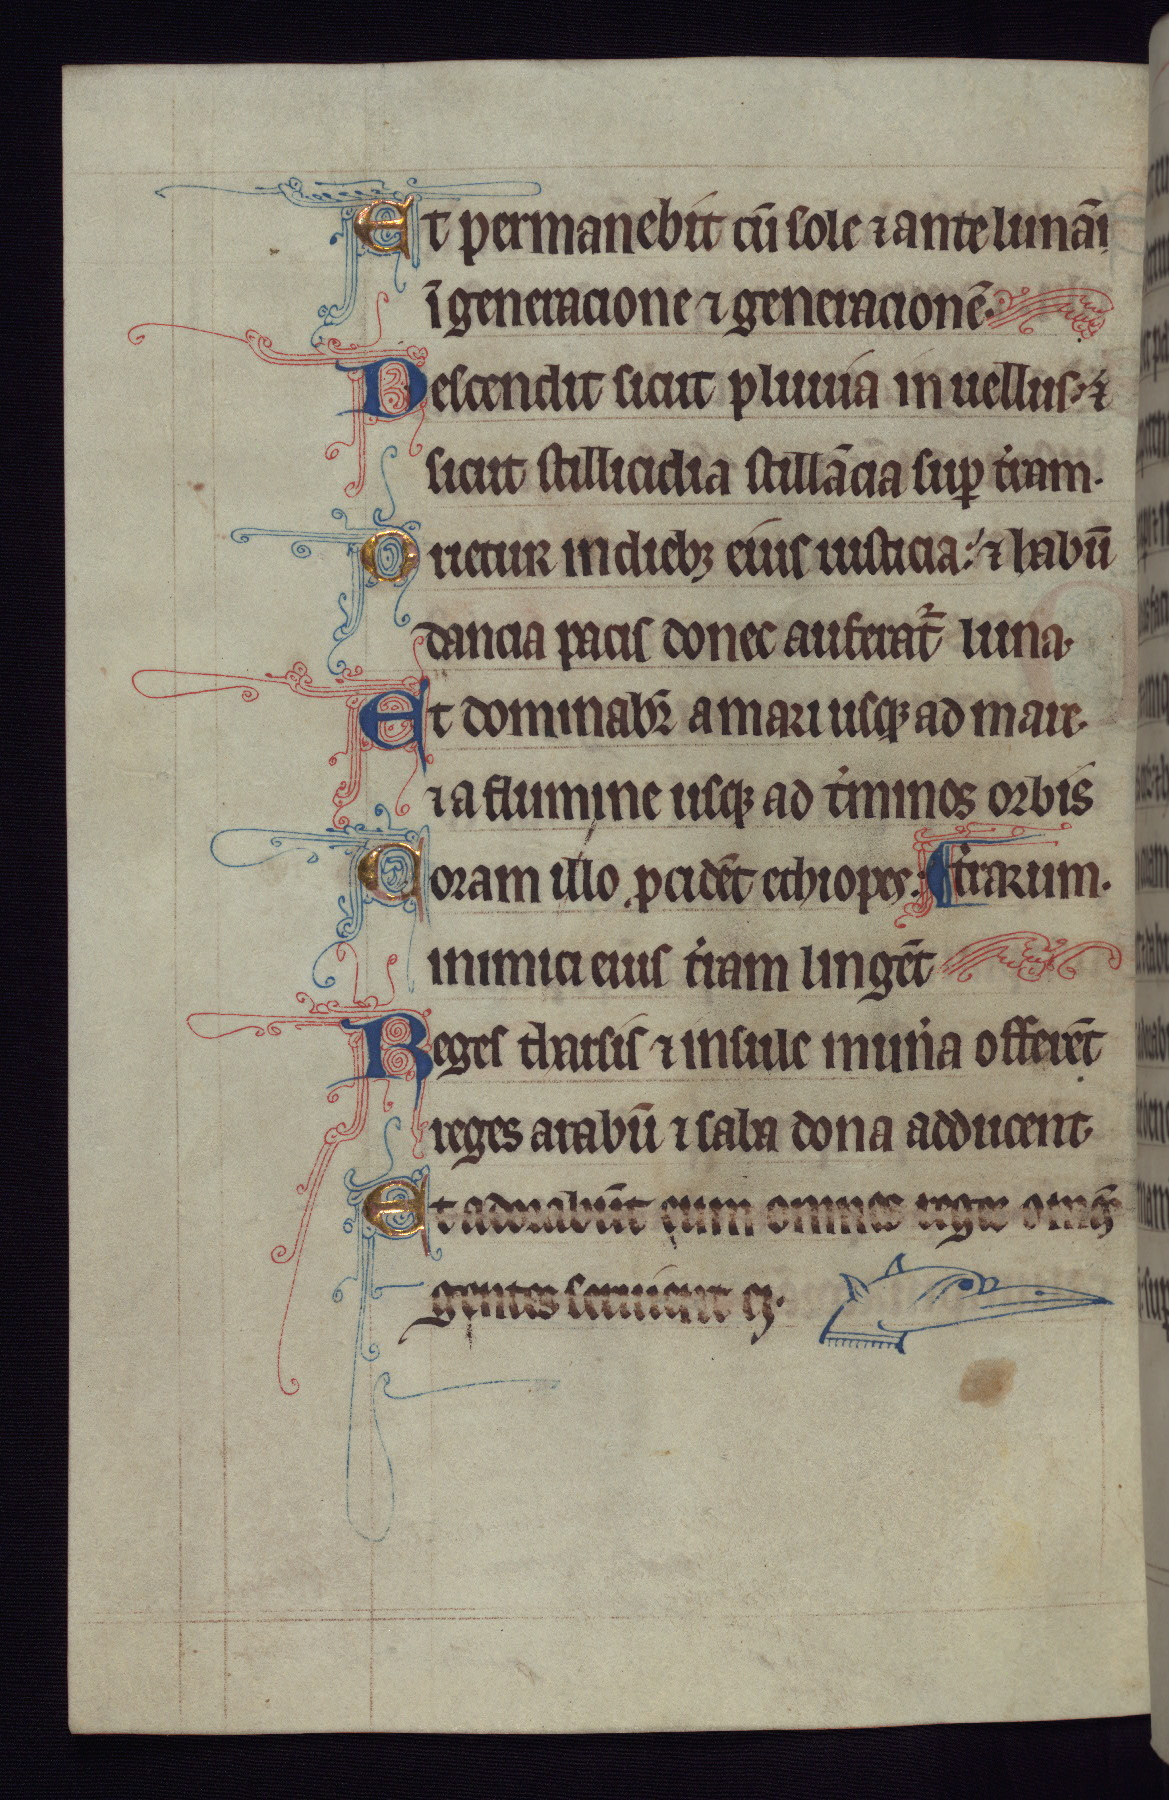 Et permanebit cū sole ⁊ ante lunāi
ī generacione ⁊ generacionē.
Descendit sicut pluuia in uellus: ⁊
sicut stillicidia stillācia suꝑ t̉ram.
Orietur in diebꝫ eius iusticia: ⁊ habū
dancia pacis donec auferat᷑ luna.
Et dominabr̄ a mari usqꝫ ad mare.
⁊ a flumine usqꝫ ad t̉minos orbis
Coram illo ꝓcidēt ethiopes: t̉rarum.
inimici eius t̉ram lingēt
Reges tharsis ⁊ insule mun̉a offerēt
reges arabū ⁊ saba dona adducent
Et adorabūt eum omnes reges om̄s
gentes seruient ei.